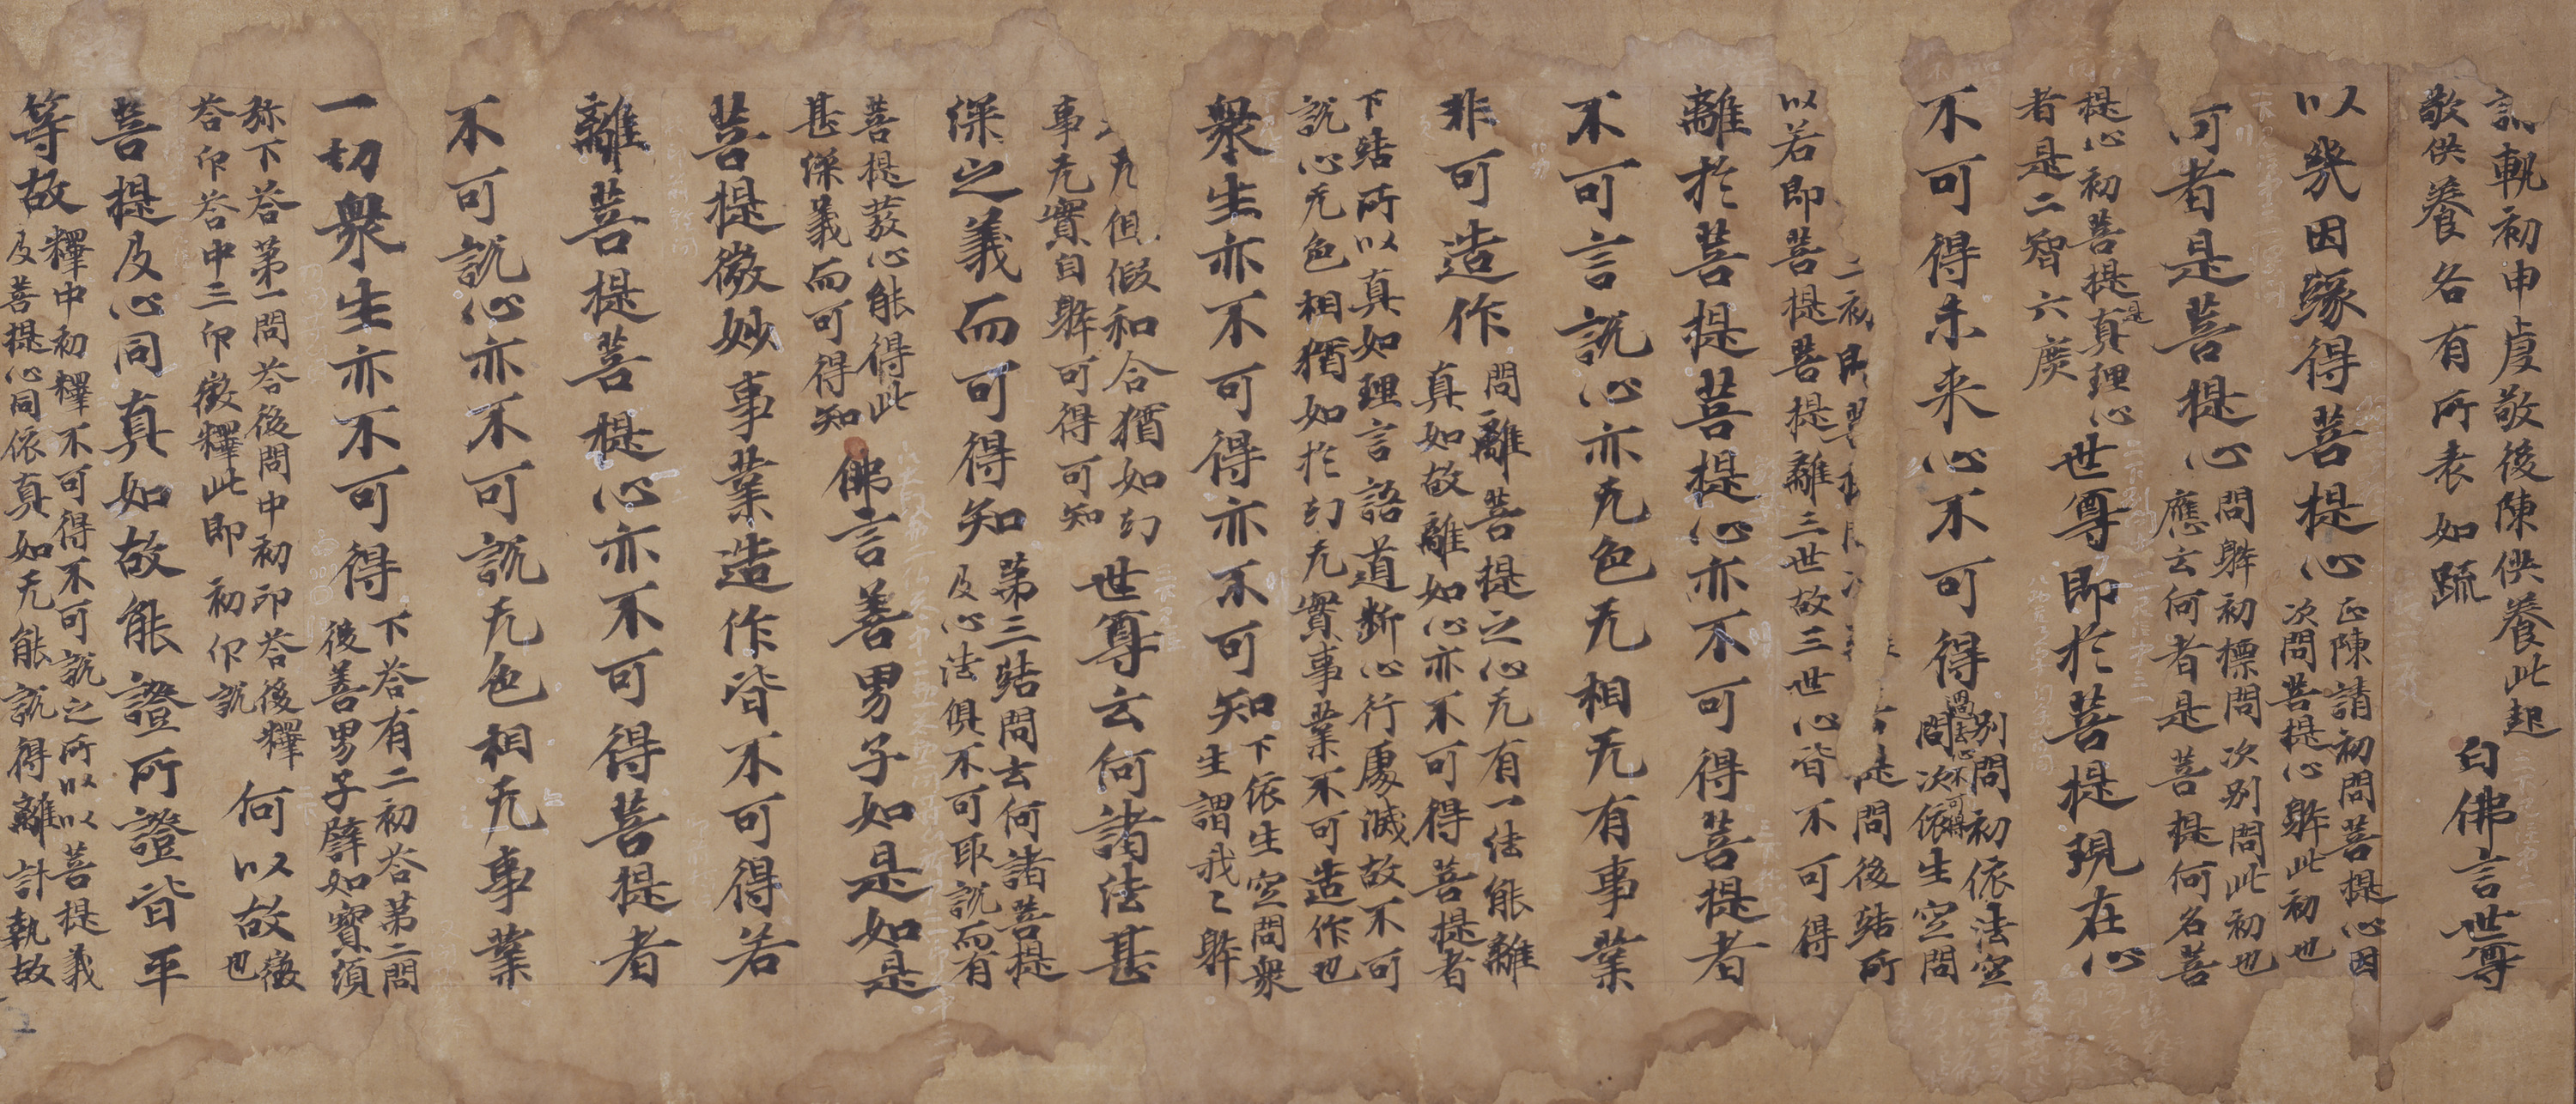 訓軌初申虔敬後陳供養此起
敬供養各有所表如疏
白佛言世尊
以幾因緣得菩提心
正陳請初問菩提心因
次問菩提心躰此初也
何者是菩提心
問躰初標問次别問此初也
應云何者是菩提何名菩
提心初菩提是真理心
者是二智六度
世尊即於菩提現在心
不可得未来心不可得
别問初依法空
過去心不可得
問次依生空問
二初即
提問後結所
以若即菩提菩提離三世故三世心皆不可得
離於菩提菩提心亦不可得菩提者
不可言說心亦无色无相无有事業
非可造作
問離菩提之心无有一法能離
真如故離如心亦不可得菩提者
下結所以真如理言語道斷心行處滅故不可
說心无色相猶如於幻无實事業不可造作也
衆生亦不可得亦不可知
下依生空問衆
生謂我〻躰
无但假和合猶如幻
事无實自躰可得可知
世尊云何諸法甚
深之義而可得知
第三結問云何諸菩提
及心法俱不可取說而有
菩提發心能得此
甚深義而可得知
佛言善男子如是如是
菩提微妙事業造作皆不可得若
離菩提菩提心亦不可得菩提者
不可說心亦不可說无色相无事業
一切衆生亦不可得
下荅有二初荅第二問
後善男子譬如寶須
弥下荅第一問荅後問中初印荅後釋
荅印荅中三印徵釋此即初印說
何以故
徵
也
菩提及心同真如故能證所證皆平
等故
釋中初釋不可得不可說之所以以菩提義
及菩提心同依真如无能說得離計執故